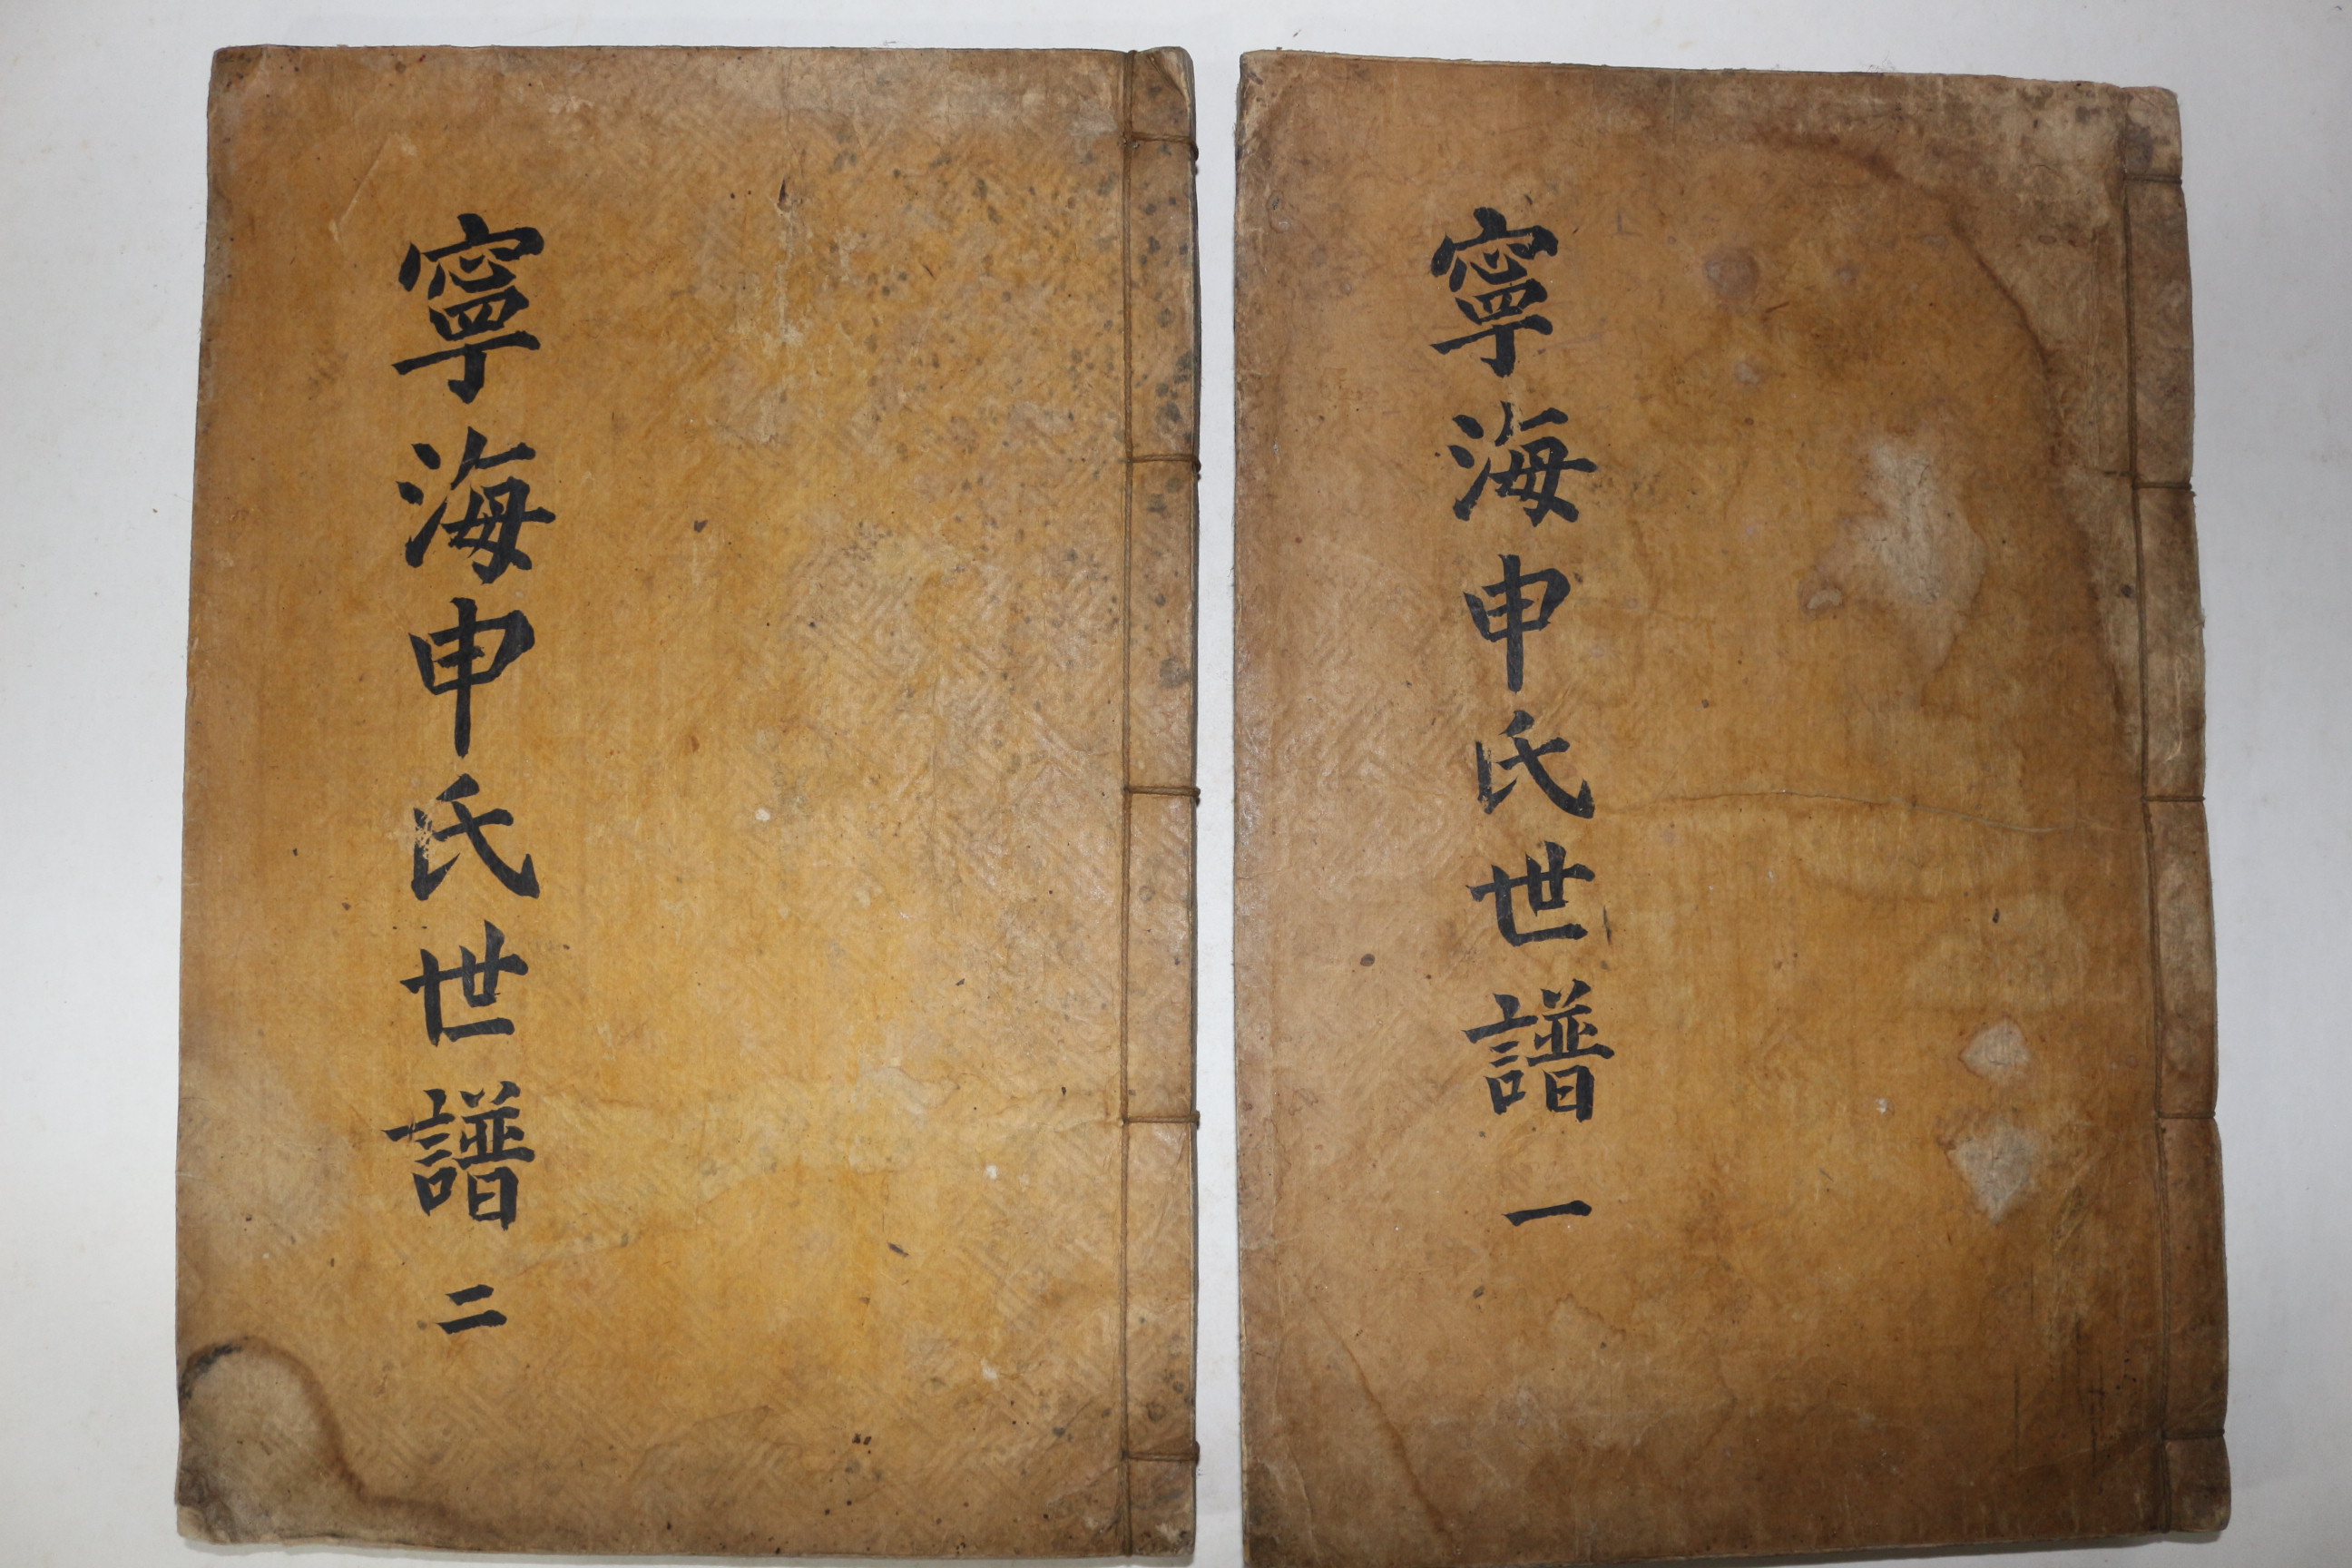 寧海申氏世譜 一
寧海申氏世譜 二